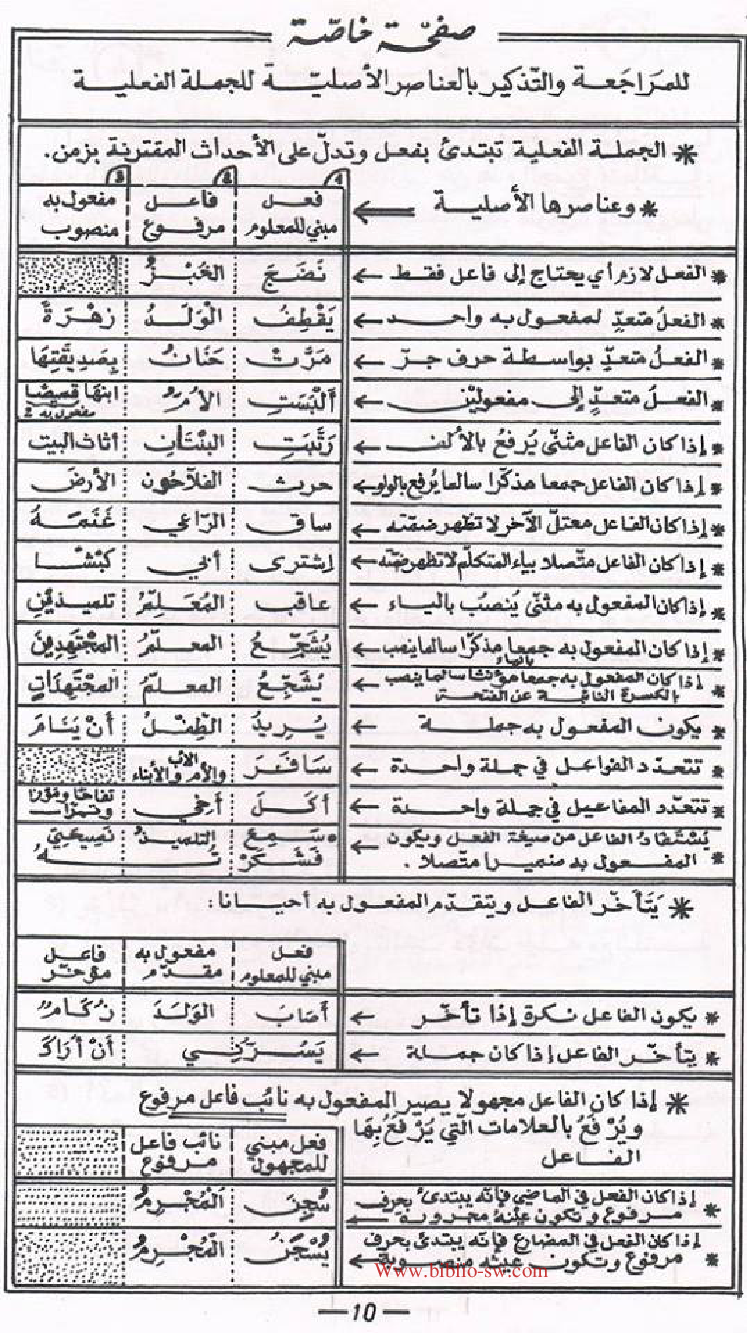 صفحة خاصّة
للمراجعة والتّذكير بالعناصر الأصليّة للجملة الفعلية
* الجملة الفعلية تبتدئ بفعل وتدلّ على الأحداث المقترنة بزمن.
* وعناصرها الأصلية ← فعل مبني للمعلوم فاعل مرفوع مفعول به منصوب
* الفعل لازم أي يحتاج إلى فاعل فقط ← نَضَجَ الخُبْزُ
* الفعلُ متعدٍّ لمفعول به واحد ← يَقْطِفُ الْوَلَدُ زهْرَةً
* الفعلُ متعدٍّ بواسطة حرف جرّ ← مَرَّتْ حَنَانُ بِصَدِيقَتِهَا
* الفعلُ متعدٍّ إلى مفعوليْن ← ألْبَسَتِ الأمُّ ابنَهَا قميصًا
مفعول به 2
* إذا كان الفاعل مثنّى يُرفعُ بالألف ← رَتَّبَتِ البنْتَانِ أثاث البيت
* إذا كان الفاعل جمعا مذكّرا سالما يُرفع بالواو ← حرث الفلاّحُون الأرضَ
* إذا كان الفاعل معتلّ الآخر لا تظهر ضمّته ← ساق الرّاعي غَنَمَهُ
* إذا كان الفاعل متّصلا بياء المتكلّم لا تظهر ضمّته ← إشترى أبي كبْشًا
* إذا كان المفعول به مثنّى يُنصبُ بالياء ← عاقب المُعَلِّمُ تلميذيْنِ
* إذا كان المفعول به جمعا مذكّرا سالما ينصب بالياء ← يُشَجِّعُ المعلّمُ المجْتَهِدِينَ
* إذا كان المفعول به جمعا مؤنّثا سالما ينصب بالكسرة النائبة عن الفتحة ← يُشَجِّعُ المعلّمُ المجْتَهِدَاتِ
* يكون المفعول به جملة ← يُرِيدُ الطِّفْلُ أنْ يَنَامَ
* تتعدّد الفواعل في جملة واحدة ← سَافَرَ الأبُ والأمّ والأبناء
* تتعدّد المفاعيل في جملة واحدة ← أكَلَ أخِي تفّاحًا ومَوْزًا وتمرَاتٍ
* يُسْتَفَادُ الفاعل من صيغة الفعل ويكون المفعول به ضميرا متّصلا. ← سَمِعَ التلميذُ نصيحتِي فَشَكَرْتُهُ
* يَتَأخّر الفاعل ويتقدّم المفعول به أحيانا:
فعل مبني للمعلوم مفعول به مقدّم فاعل مؤخّر
* يكون الفاعل نكرة إذا تأخّر ← أصَابَ الوَلَدَ زُكَامٌ
* يتأخّر الفاعل إذا كان جملة ← يَسُرّنِي أنْ أرَاكَ
* إذا كان الفاعل مجهولا يصير المفعول به نائبُ فاعل مرفوع
ويُرْفَعُ بالعلامات الّتي يَرْفعُ بِهَا الفاعل
فعل مبني للمجهول نائب فاعل مرفوع
* إذا كان الفعل في الماضي فإنّه يبتدئ بحرف مرفوع وتكون عينُهُ مجرورة ← سُجِنَ الْمُجْرِمُ
* إذا كان الفعل في المضارع فإنّه يبتدئ بحرف مرفوع وتكون عينُه منصوبة ← يُسْجَنُ الْمُجْرِمُ
www.biblio-sw.com
10